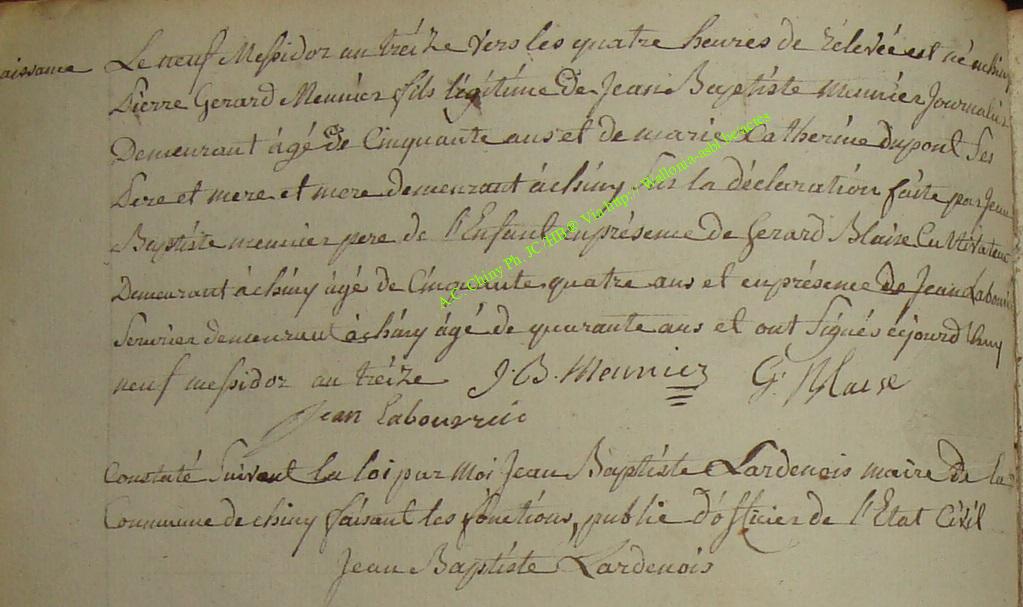 aissance Le neuf Messidor an trèize vers les quatre heures de rélevée est né a chiny
Pierre Gerard Meunier fils légitime de Jean Baptiste meunier Journalier
Demeurant âgé de Cinquante ans et de marie Catherine dupont Ses
Pere et mere et mere demeurant à chiny, Sur la déclaration faite par Jean
Baptiste meunier pere de l'Enfant enprésense de Gerard Blaise Cultivateur
Demeurant à chiny âgé de Cinquante quatre ans et enprésense de Jean
Serurier demeurant à chiny âgé de quarante ans et ont Signés cejourd'huy
neuf messidor an trèize J. B. Meunier G. Blaise
Jean
Constaté Suivant la loi par moi Jean Baptiste Lardenois maire de la
Commune de chiny faisant les fonctions publie d'officier de l'Etat Civil
Jean Baptiste Lardenois
A.C. Chiny Ph. JC/HB® Via Imp./ Wallonia-asbl.be/actes